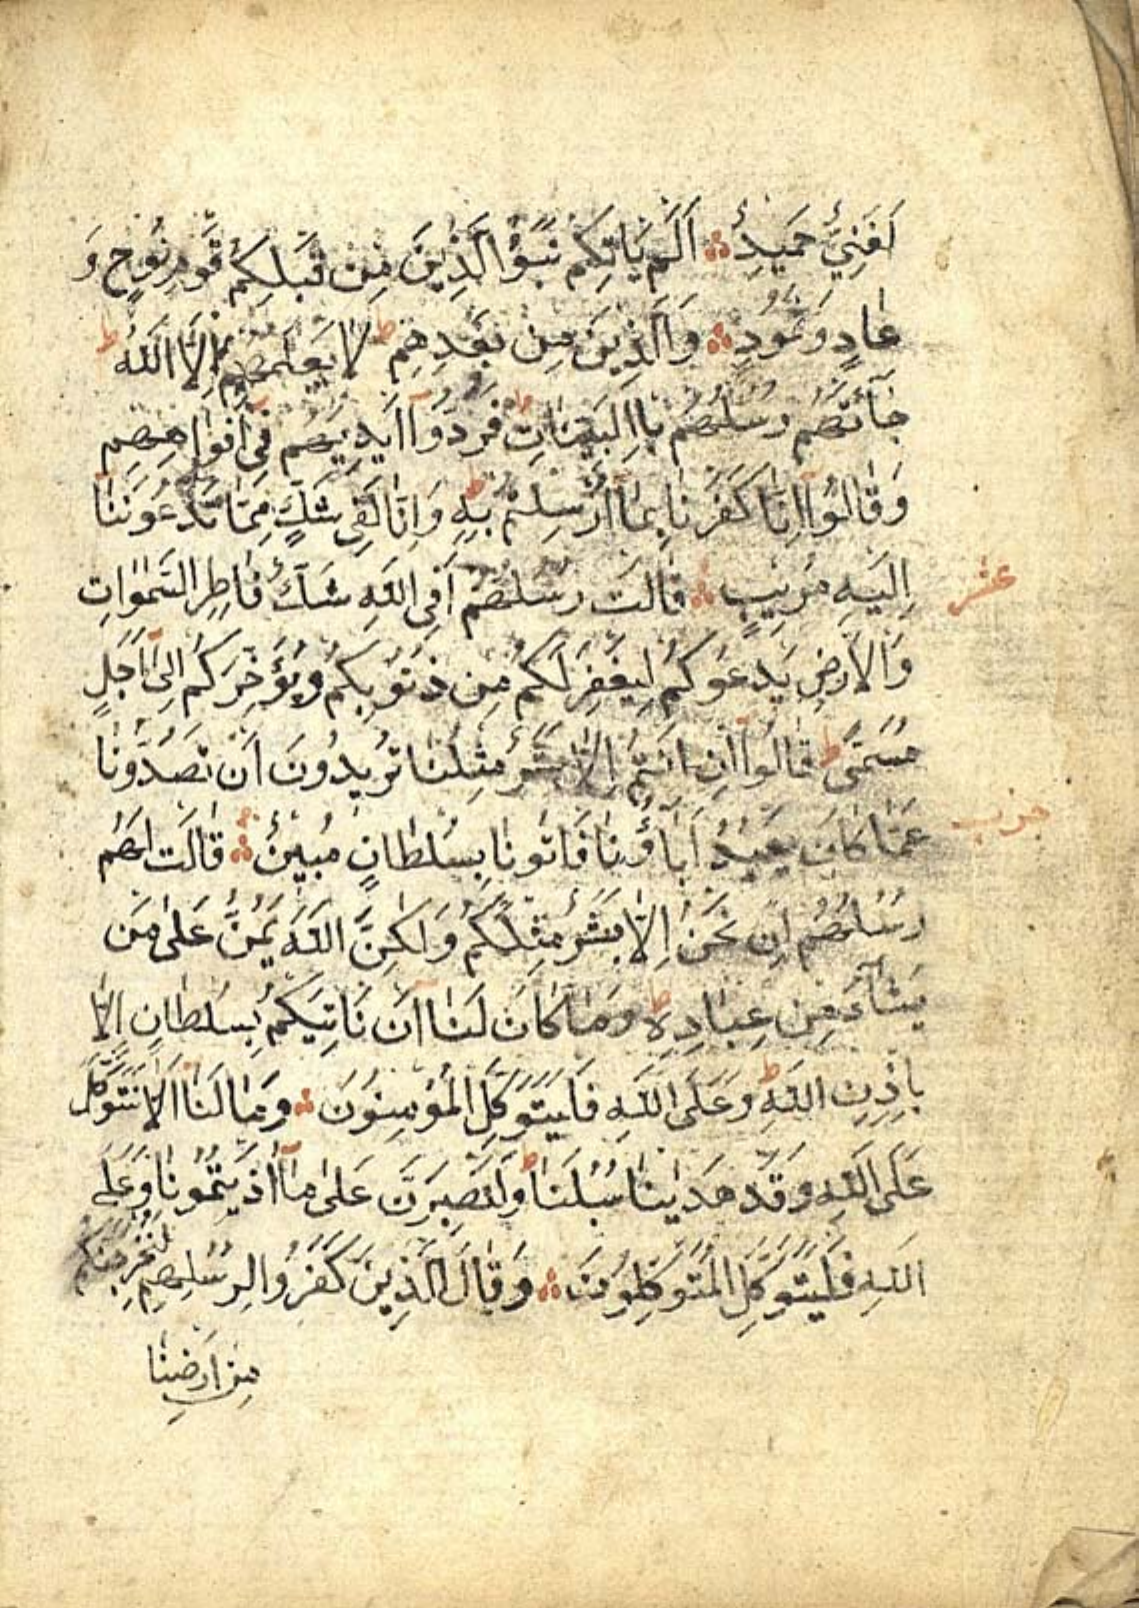 لَغَنِيٌّ حَمِيدٌ اَلَمْ يَاْتِكُمْ نَبَؤُا الَّذِينَ مِنْ قَبْلِكُمْ قَوْمِ نُوحٍ وَ
عَادٍ وَثَمُودَ وَالَّذِينَ مِنْ بَعْدِهِمْ ط لَا يَعْلَمُهُمْ اِلَّا اللّٰهُ ط
جَآءَتْهُمْ رُسُلُهُمْ بِالْبَيِّنَاتِ فَرَدُّوآ اَيْدِيَهُمْ فِىٓ اَفْوَاهِهِمْ
وَقَالُوآ اِنَّا كَفَرْنَا بِمَآ اُرْسِلْتُمْ بِهِ وَاِنَّا لَفِى شَكٍّ مِمَّا تَدْعُونَنَآ
اِلَيْهِ مُرِيبٍ قَالَتْ رُسُلُهُمْ اَفِى اللّٰهِ شَكٌّ فَاطِرِ السَّمٰوَاتِ
عشر
وَالْاَرْضِ يَدْعُوكُمْ لِيَغْفِرَ لَكُمْ مِنْ ذُنُوبِكُمْ وَيُؤَخِّرَكُمْ اِلٰىٓ اَجَلٍ
مُسَمًّى ط قَالُوآ اِنْ اَنْتُمْ اِلَّا بَشَرٌ مِثْلُنَا تُرِيدُونَ اَنْ تَصُدُّونَا
حزب
عَمَّا كَانَ يَعْبُدُ اٰبَآؤُنَا فَاْتُونَا بِسُلْطَانٍ مُبِينٍ قَالَتْ لَهُمْ
رُسُلُهُمْ اِنْ نَحْنُ اِلَّا بَشَرٌ مِثْلُكُمْ وَلٰكِنَّ اللّٰهَ يَمُنُّ عَلٰى مَنْ
يَشَآءُ مِنْ عِبَادِهِ ط وَمَا كَانَ لَنَآ اَنْ نَاْتِيَكُمْ بِسُلْطَانٍ اِلَّا
بِاِذْنِ اللّٰهِ ط وَعَلَى اللّٰهِ فَلْيَتَوَكَّلِ الْمُؤْمِنُونَ وَمَا لَنَآ اَلَّا نَتَوَكَّلَ
عَلَى اللّٰهِ وَقَدْ هَدٰينَا سُبُلَنَا ط وَلَنَصْبِرَنَّ عَلٰى مَآ اٰذَيْتُمُونَا وَعَلَى
اللّٰهِ فَلْيَتَوَكَّلِ الْمُتَوَكِّلُونَ وَقَالَ الَّذِينَ كَفَرُوا لِرُسُلِهِمْ لَنُخْرِجَنَّكُمْ
مِنْ اَرْضِنَا